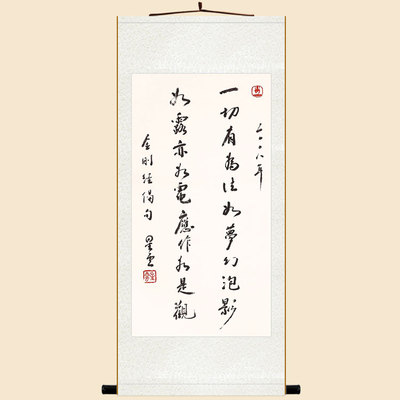 二〇〇八年
一切有為法如夢幻泡影
如露亦如電應作如是觀
金剛經偈句
星雲